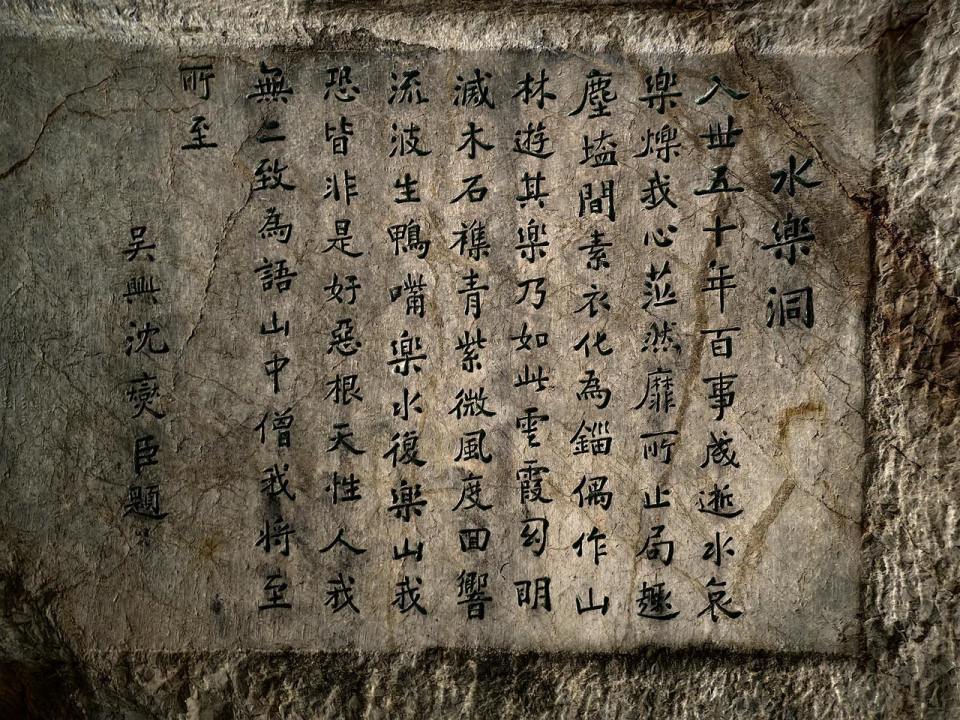 水楽洞
入世五十年百事成逝水哀
楽爍我心茫然靡所止局趣
塵壒間素衣化為緇偶作山
林遊其楽乃如此雲霞幻明
滅木石襍青紫微風度回響
流波生鴨嘴楽水復楽山我
恐皆非是好惡根天性人我
無二致為語山中僧我将至
所至
吴興沈燮臣題